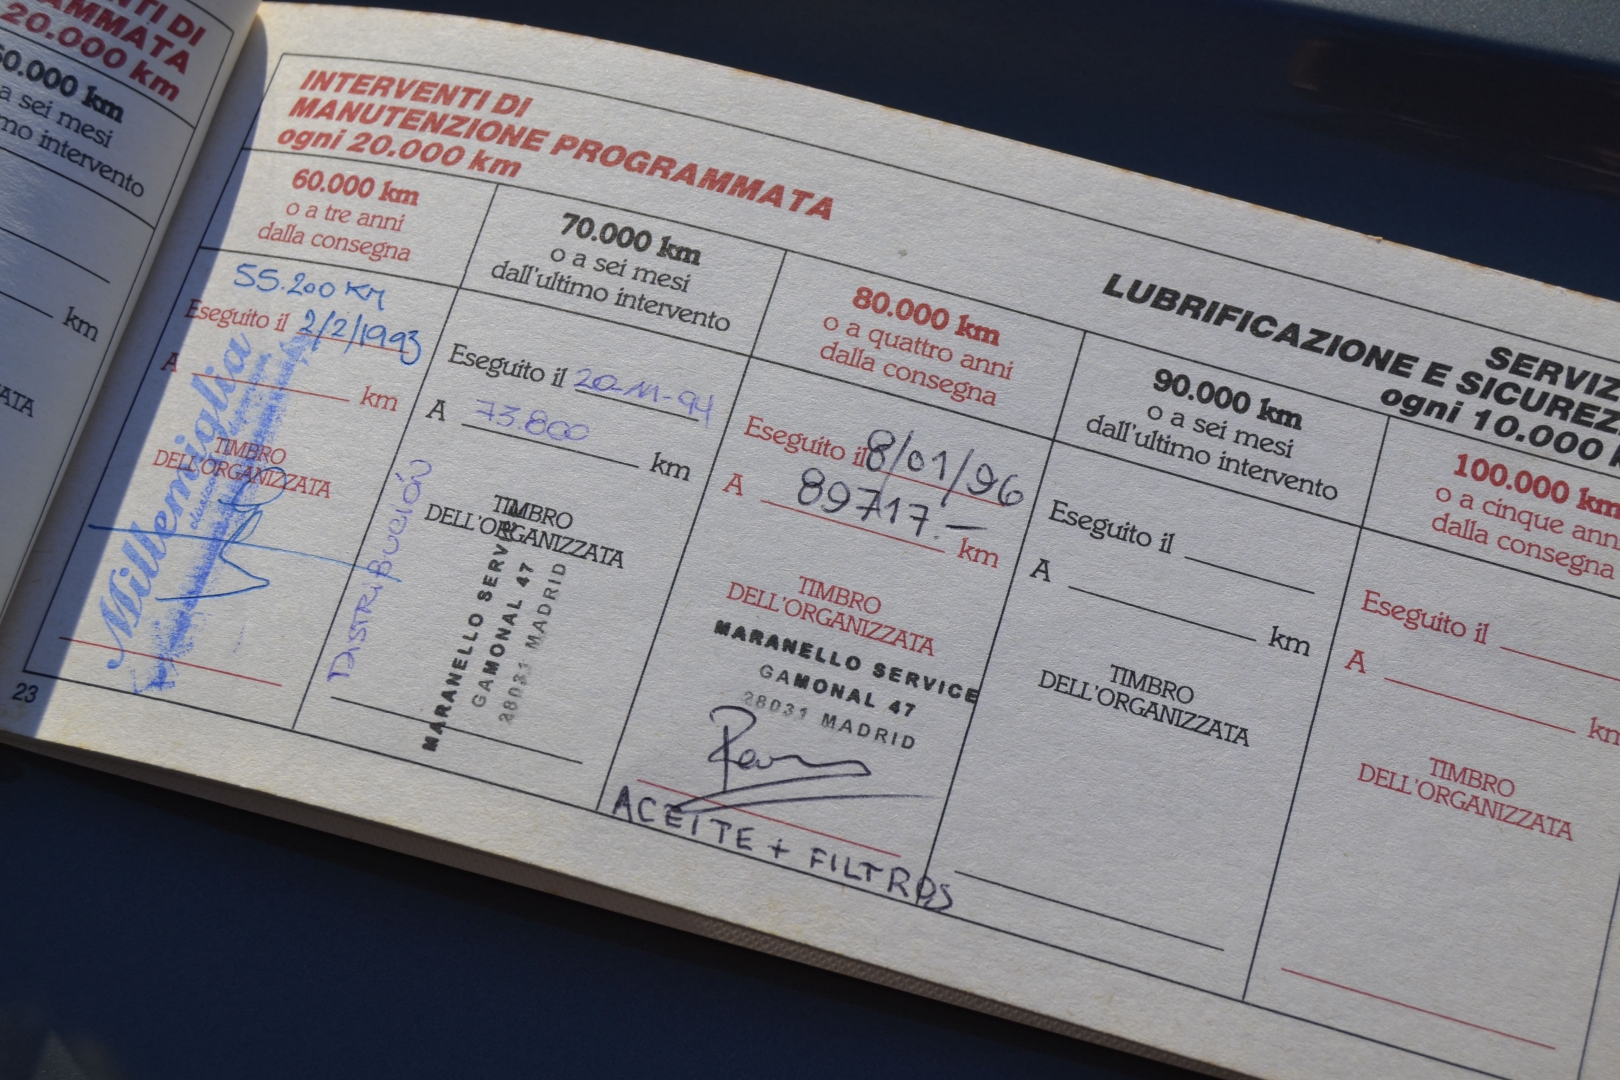 NTI DI
AMMATA
20.000 km
60.000 km
a sei mesi
mo intervento
km
ATA
INTERVENTI DI
MANUTENZIONE PROGRAMMATA
ogni 20.000 km
SERVIZ
LUBRIFICAZIONE E SICUREZ
ogni 10.000 k
60.000 km
o a tre anni
dalla consegna
55.200 KM
Eseguito il 2/2/1993
A km
TIMBRO
DELL'ORGANIZZATA
Millemiglia
23
70.000 km
o a sei mesi
dall'ultimo intervento
Eseguito il 20-11-94
A 73.800 km
TIMBRO
DELL'ORGANIZZATA
DISTRIBUCIÓN
MARANELLO SERVICE
GAMONAL 47
28031 MADRID
80.000 km
o a quattro anni
dalla consegna
Eseguito il 8/01/96
A 89717.- km
TIMBRO
DELL'ORGANIZZATA
MARANELLO SERVICE
GAMONAL 47
28031 MADRID
ACEITE + FILTROS
90.000 km
o a sei mesi
dall'ultimo intervento
Eseguito il
A km
TIMBRO
DELL'ORGANIZZATA
100.000 km
o a cinque anni
dalla consegna
Eseguito il
A km
TIMBRO
DELL'ORGANIZZATA